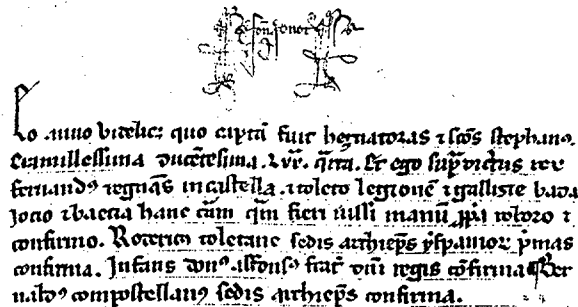 Eo anno videlicz quo captū fuit heznatoraf ⁊ scōs stephanꝰ.
Era millessima ducētesima. Lxᵃ. q̄rta. Et ego supᵃdictus rex
fernandꝰ regnās in castella. ⁊ toleto legionē ⁊ gallisie bada
locio ⁊ baecia hanc cartam quam fieri iussi manū ꝓpia roboro ⁊
confirmo. Rodericꝰ toletane sedis archiepṡ yspanior pᵃmas
confirma. Infans donꝰ alfonsꝰ frater dn̄i regis cōfirma Ber
naldꝰ compostellanꝰ sedis archiepṡ confirma.